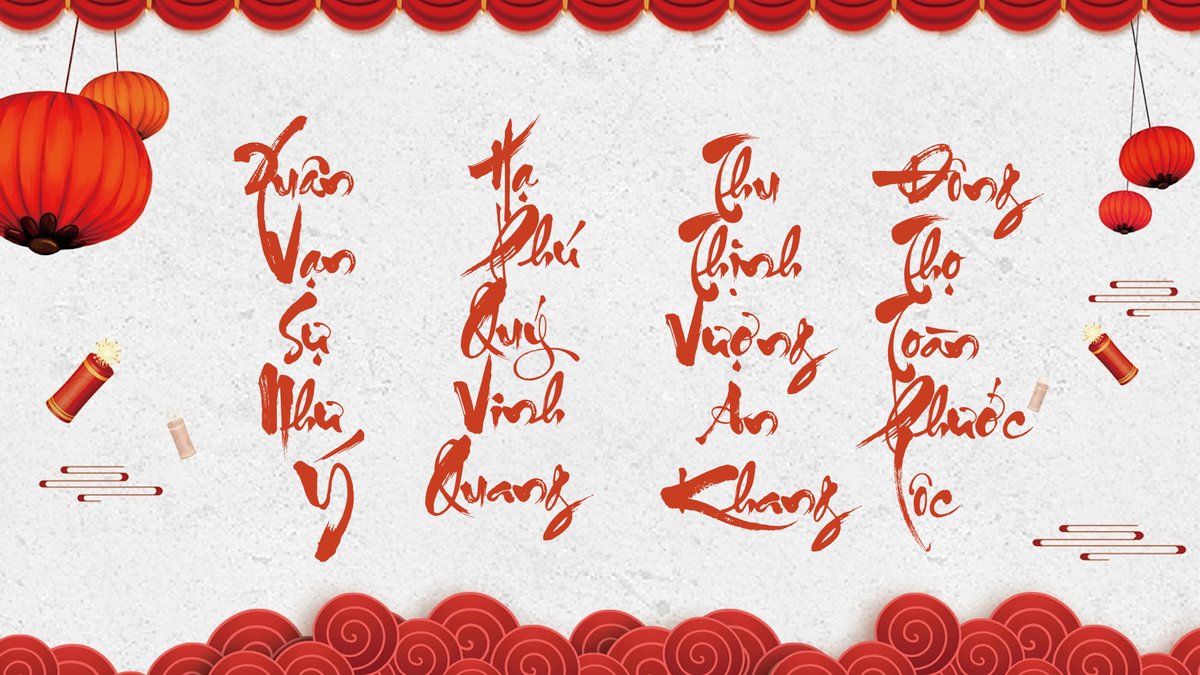 Xuân Vạn Sự Như Ý
Hạ Phú Quý Vinh Quang
Thu Thịnh Vượng An Khang
Đông Thọ Toàn Phước Lộc